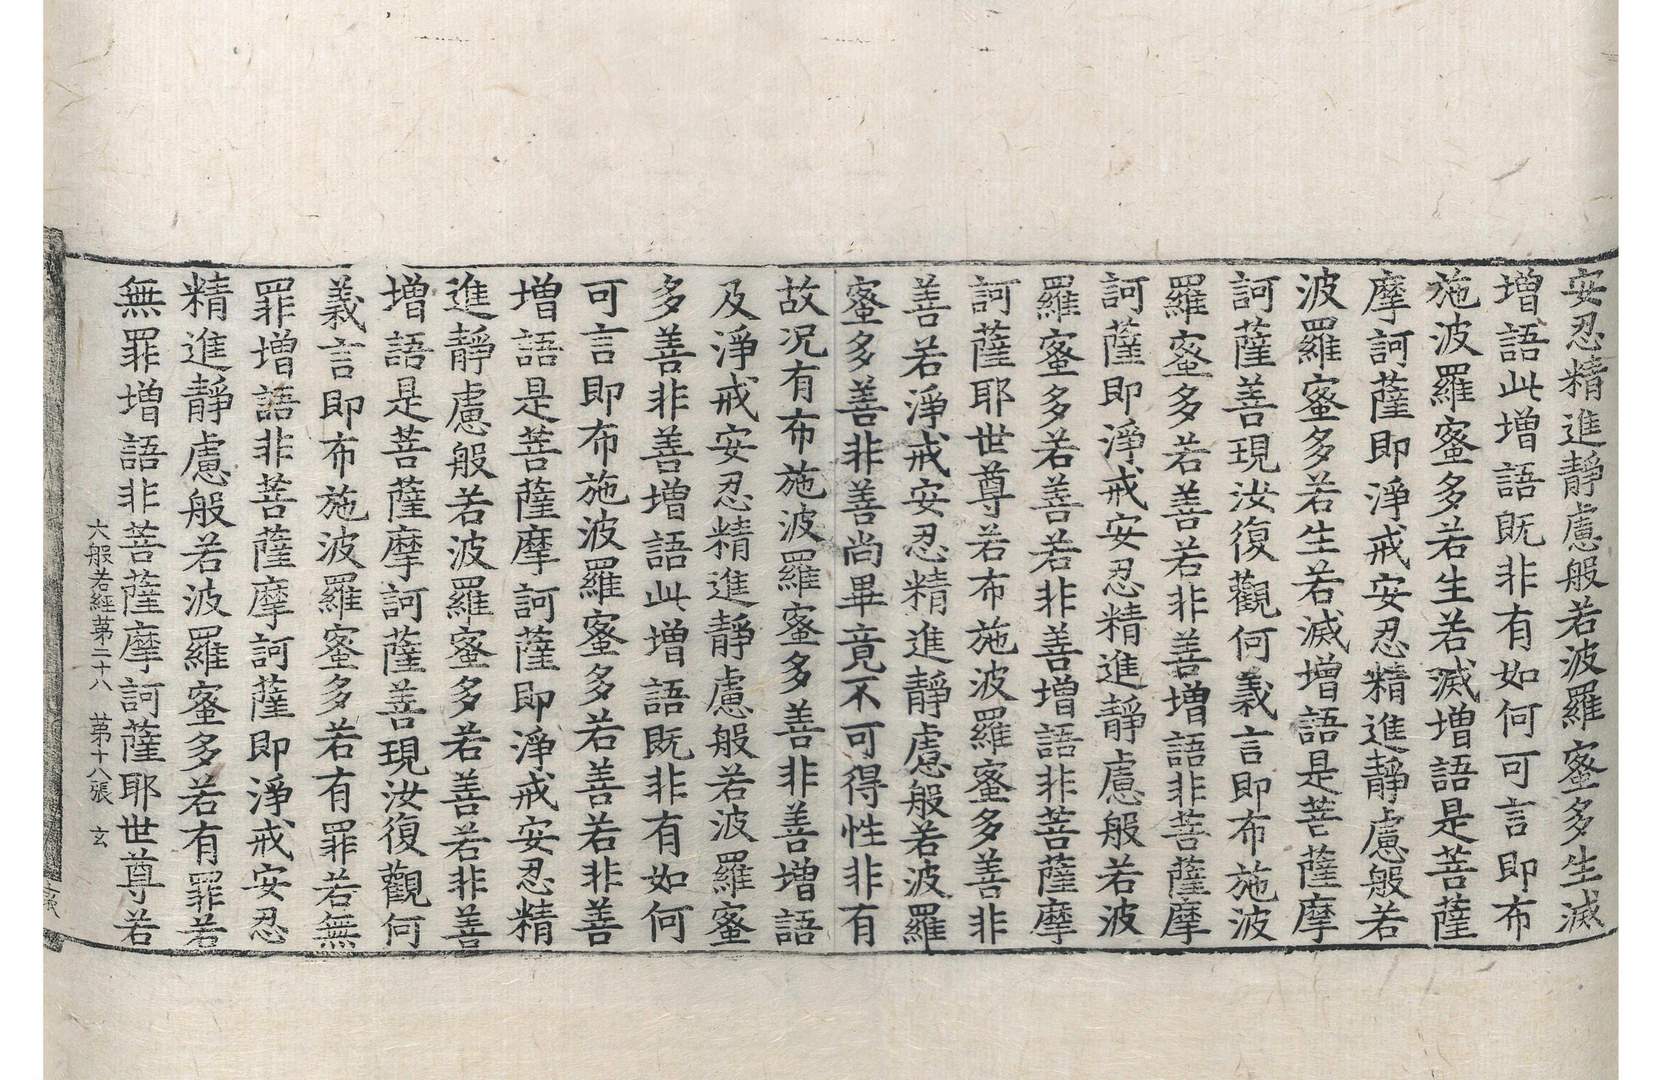 安忍精進靜慮般若波羅蜜多生滅
增語此增語旣非有如何可言即布
施波羅蜜多若生若滅增語是菩薩
摩訶薩即淨戒安忍精進靜慮般若
波羅蜜多若生若滅增語是菩薩摩
訶薩善現汝復觀何義言即布施波
羅蜜多若善若非善增語非菩薩摩
訶薩即淨戒安忍精進靜慮般若波
羅蜜多若善若非善增語非菩薩摩
訶薩耶世尊若布施波羅蜜多善非
善若淨戒安忍精進靜慮般若波羅
蜜多善非善尚畢竟不可得性非有
故況有布施波羅蜜多善非善增語
及淨戒安忍精進靜慮般若波羅蜜
多善非善增語此增語旣非有如何
可言即布施波羅蜜多若善若非善
增語是菩薩摩訶薩即淨戒安忍精
進靜慮般若波羅蜜多若善若非善
增語是菩薩摩訶薩善現汝復觀何
義言即布施波羅蜜多若有罪若無
罪增語非菩薩摩訶薩即淨戒安忍
精進靜慮般若波羅蜜多若有罪若
無罪增語非菩薩摩訶薩耶世尊若
大般若經第二十八 第十八張 玄